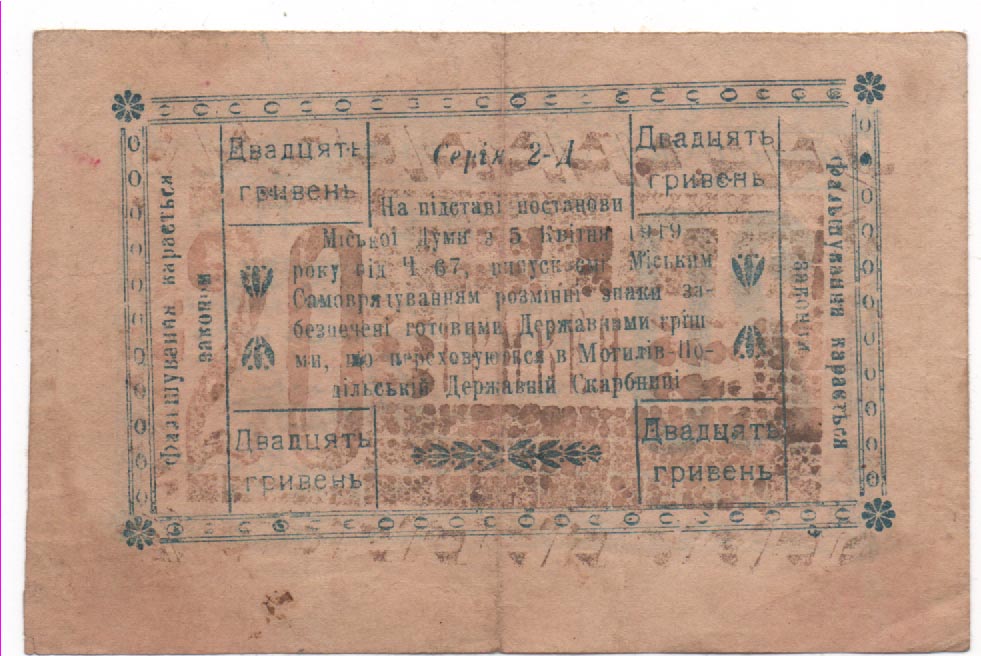 Двадцять
гривень
Серія 2-Д
Двадцять
гривень
На підставі постанови
Міської Думи з 5 Квітня 1919
року від Ч 67, випускємі Міським
Самоврядуванням розмінні знаки за-
безпечені готовими Державними гріш-
ми, що переховуюцся в Могилів-По-
дільській Державній Скарбниці
Двадцять
гривень
Двадцять
гривень
Фальшування карається
законом
Фальшування карається
законом
20